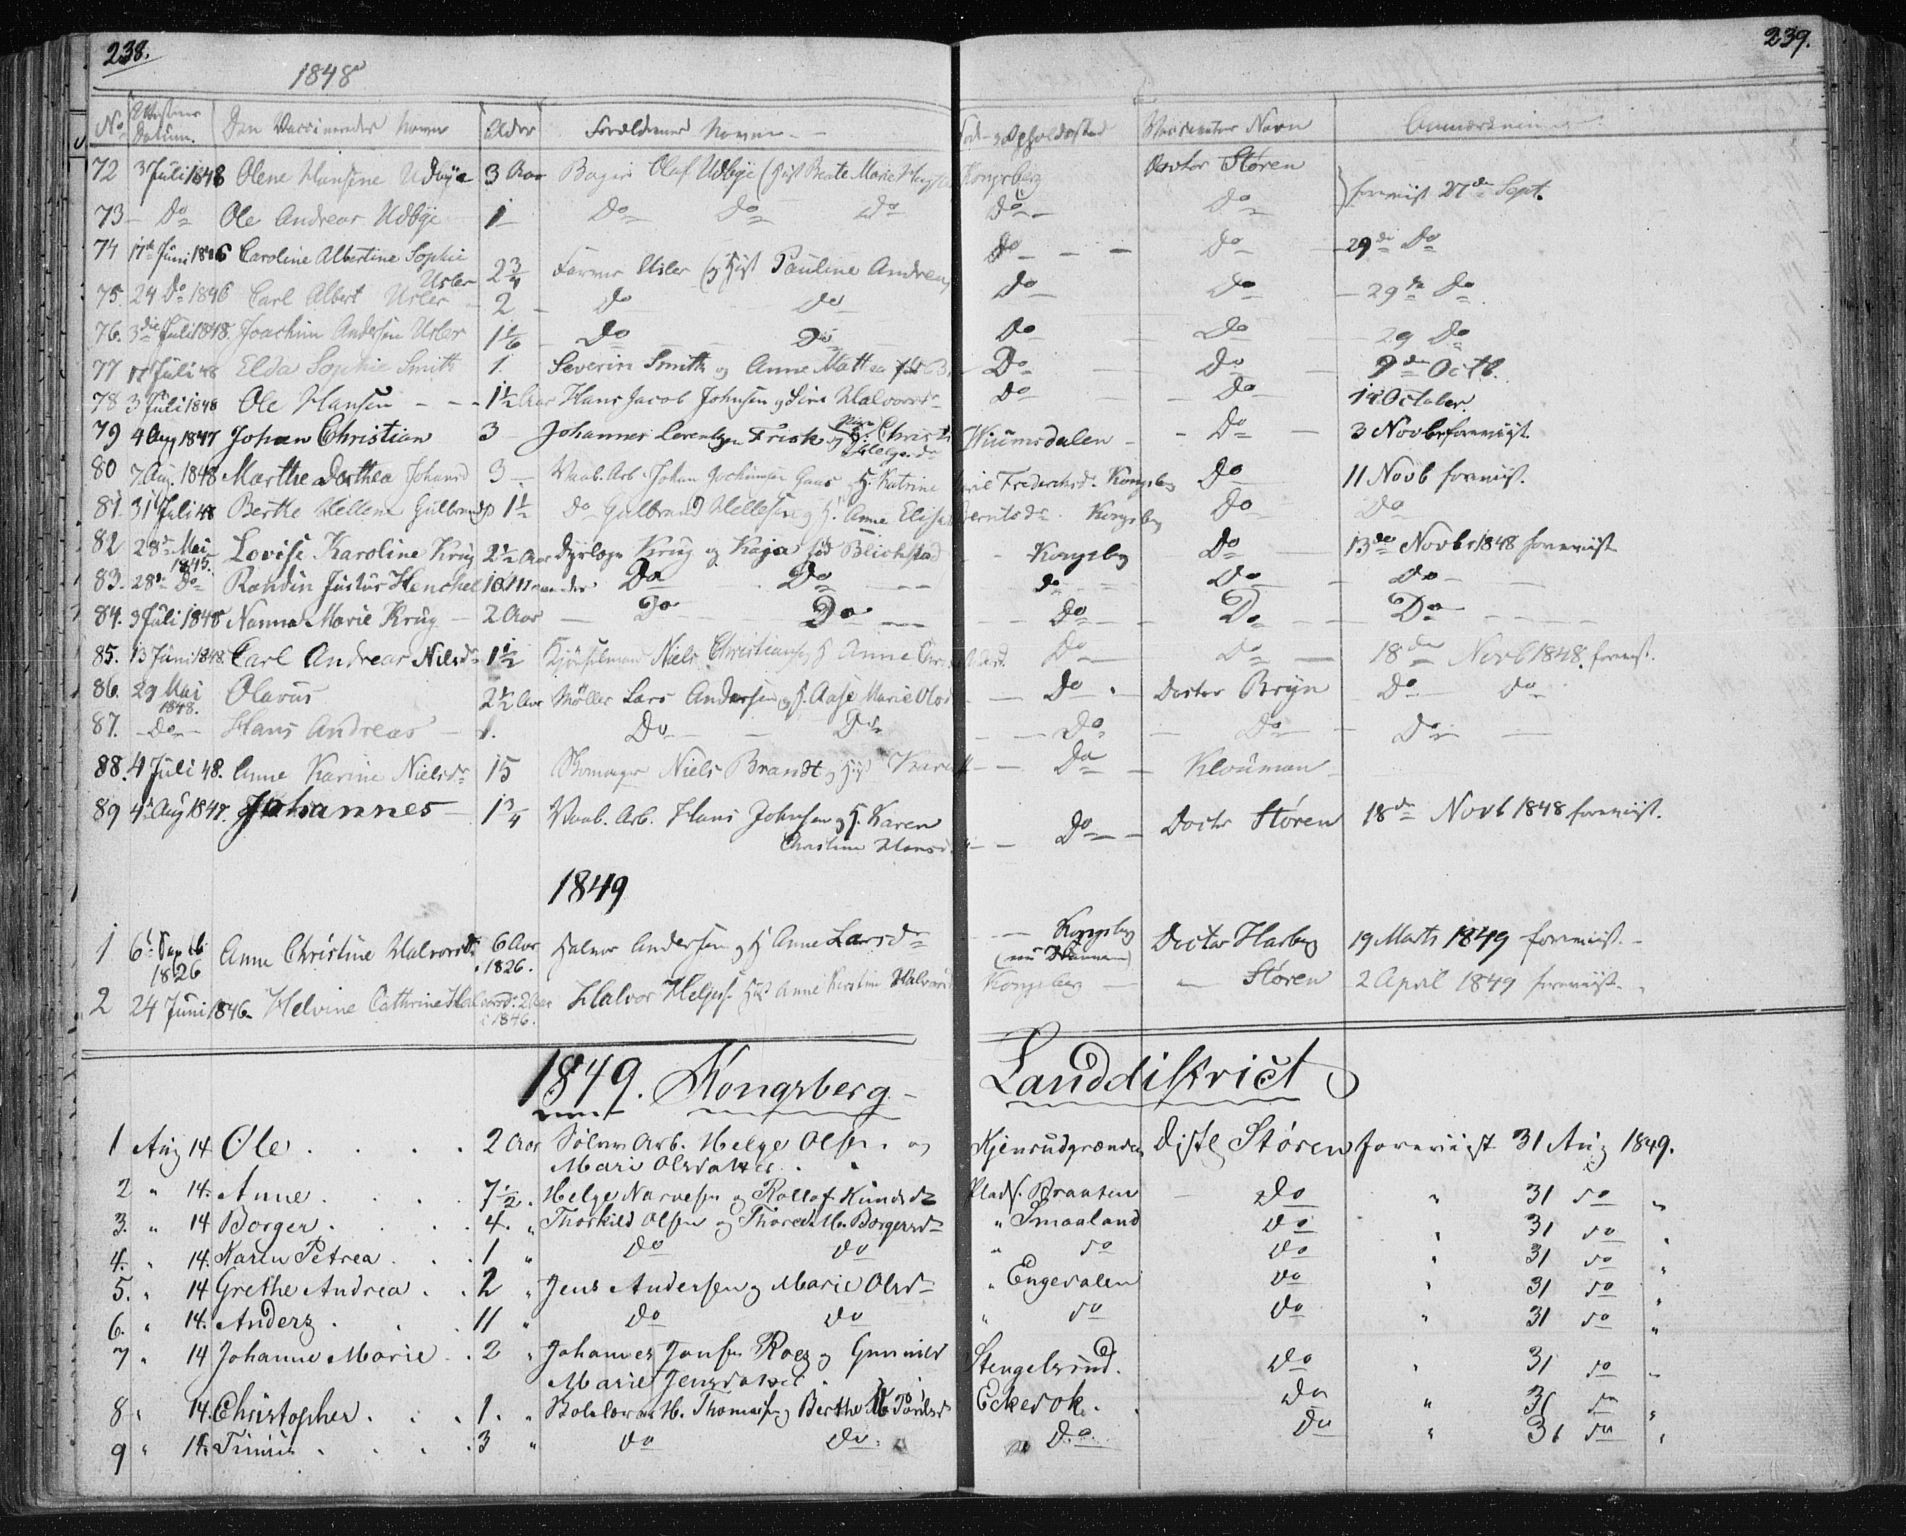 238.
239.
1848
No Datum. Den Vaccineredes Navn Alder Forældrenes Navne Opholdssted Vaccinators Navn Anmærkning
72 3 Juli 1848 Olene Hansine Udbye 3 Aar Bager Olaf Udbye Beate Marie Kongsberg Doctor Støren foreviist 27de Sept.
73 Do Ole Andreas Udbye 1 Do Do Do Do Do
74 17de Juni 1846 Caroline Albertine Sophie Usler 2 3/4 Farver Usler og Pauline Andrea Do Do 29de Do
75. 24 Do 1846 Carl Albert Usler 2 Do Do Do Do 29de Do
76. 3die Juli 1848. Joachim Andersen Usler 1 1/6 Do Do Do Do 29 Do
77 17 Juli 48 Elda Sophie Smith 1. Severin Smith og Anne Mathea Do Do 9de Octb.
78 3 Juli 1848 Ole Hansen 1 1/2 Aar Hans Jacob Johnsen og Sine Halvorsdr Do Do 14 October.
79 4 Aug 1847 Johan Christian 3 Johannes Lorentzen Frisk og Christ Wiumsdalen Do 3 Novbr foreviist.
80 7 Aug. 1848 Marthe Dorthea Johansd 3 Vaab. Arb. Johan Jochumsen Gaas og H. Katrine Frederiksd. Kongsberg Do 11 Novb foreviist.
81. 31 Juli 48 Berthe Hellene Gulbrandsd 1 1/2 Do Gulbrand Hellesen og H. Anne Elisab Berntsdr. Kongsberg Do Do
82 28de Mai 1845. Lovise Karoline Krug 2 1/2 Aar Dyrlæge Krug og Kaja fød Blichfeld Kongsberg Do 13de Novbr 1848 foreviist
83. 28de Do Randin Justus Henchel 10 Maaneder Do Do do Do Do
84. 3 Juli 1848 Nanna Marie Krug 2 Aar Do Do Do Do Do
85. 13 Juni 1848. Carl Andreas Nilsd 1 1/2 Niels Christiansen og H Anne Do Do 18de Novb 1848. foreviist.
86. 29 Mai 1848. Olavus 2 1/2 Aar Møller Lars Andersen og H. Aase Marie Olsd Do Doctor Bryn Do Do
87. Do Hans Andreas 1. Do Do Do Do Do
88. 4 Juli 48. Anne Karine Nielsdr 15 Skomager Niels Brandt og Karen Do Klouman
89 4 Aug 1847. Johannes 1 3/4 Vaab. Arb. Hans Johnsen og H. Karen Christine Hansd. Do Doctr Støren 18de Novb 1848 foreviist.
1849
1 6 Septb 1826 Anne Christine Halvorsdr 6 Aar 1826. Halvor Andersen og H Anne Larsdr Kongsberg Doctor Harberg 19 Marts 1849 foreviist.
2 24 Juni 1846. Helvine Cathrine Halvorsd. 2 Aar i 1846. Halvor Helgess. Anne Kirstine Halvorsd Kongsberg Støren 2 April 1849 foreviist.
1849. Kongsberg Landdistrict
1 Aug 14. Ole 2 Aar Sølvv. Arb. Helge Olsen og Mari Olsdatter Kjensrudgrænden Distl. Støren foreviist 31 Aug 1849.
2 " 14. Anne 7 1/2 Helge Narvesen og Knudsdr Plads. Braaten Do " 31 do "
3. " 14 Borger 4. " Thorkild Olsen og Borgersdr " Smaaland Do " 31 do "
4. " 14. Karen Petrea 1 " Do Do " do Do " 31 do "
5. " 14 Grethe Andrea 2 " Jens Andersen og Marie Olsdr " Engedalen Do " 31 do "
6. " 14. Anders 11 " Do Do " do Do " 31 do "
7 " 14 Johanne Marie 2 " Johannes Jonsen Roes og Gunnild Marie Jensdatter Stengelsrud. Do " 31 do "
8 " 14. Christopher 1. " Thomasen og Berthe Eckedok. Do " 31 do "
9 " 14. 3 " Do Do. Do. Do " 31 do "